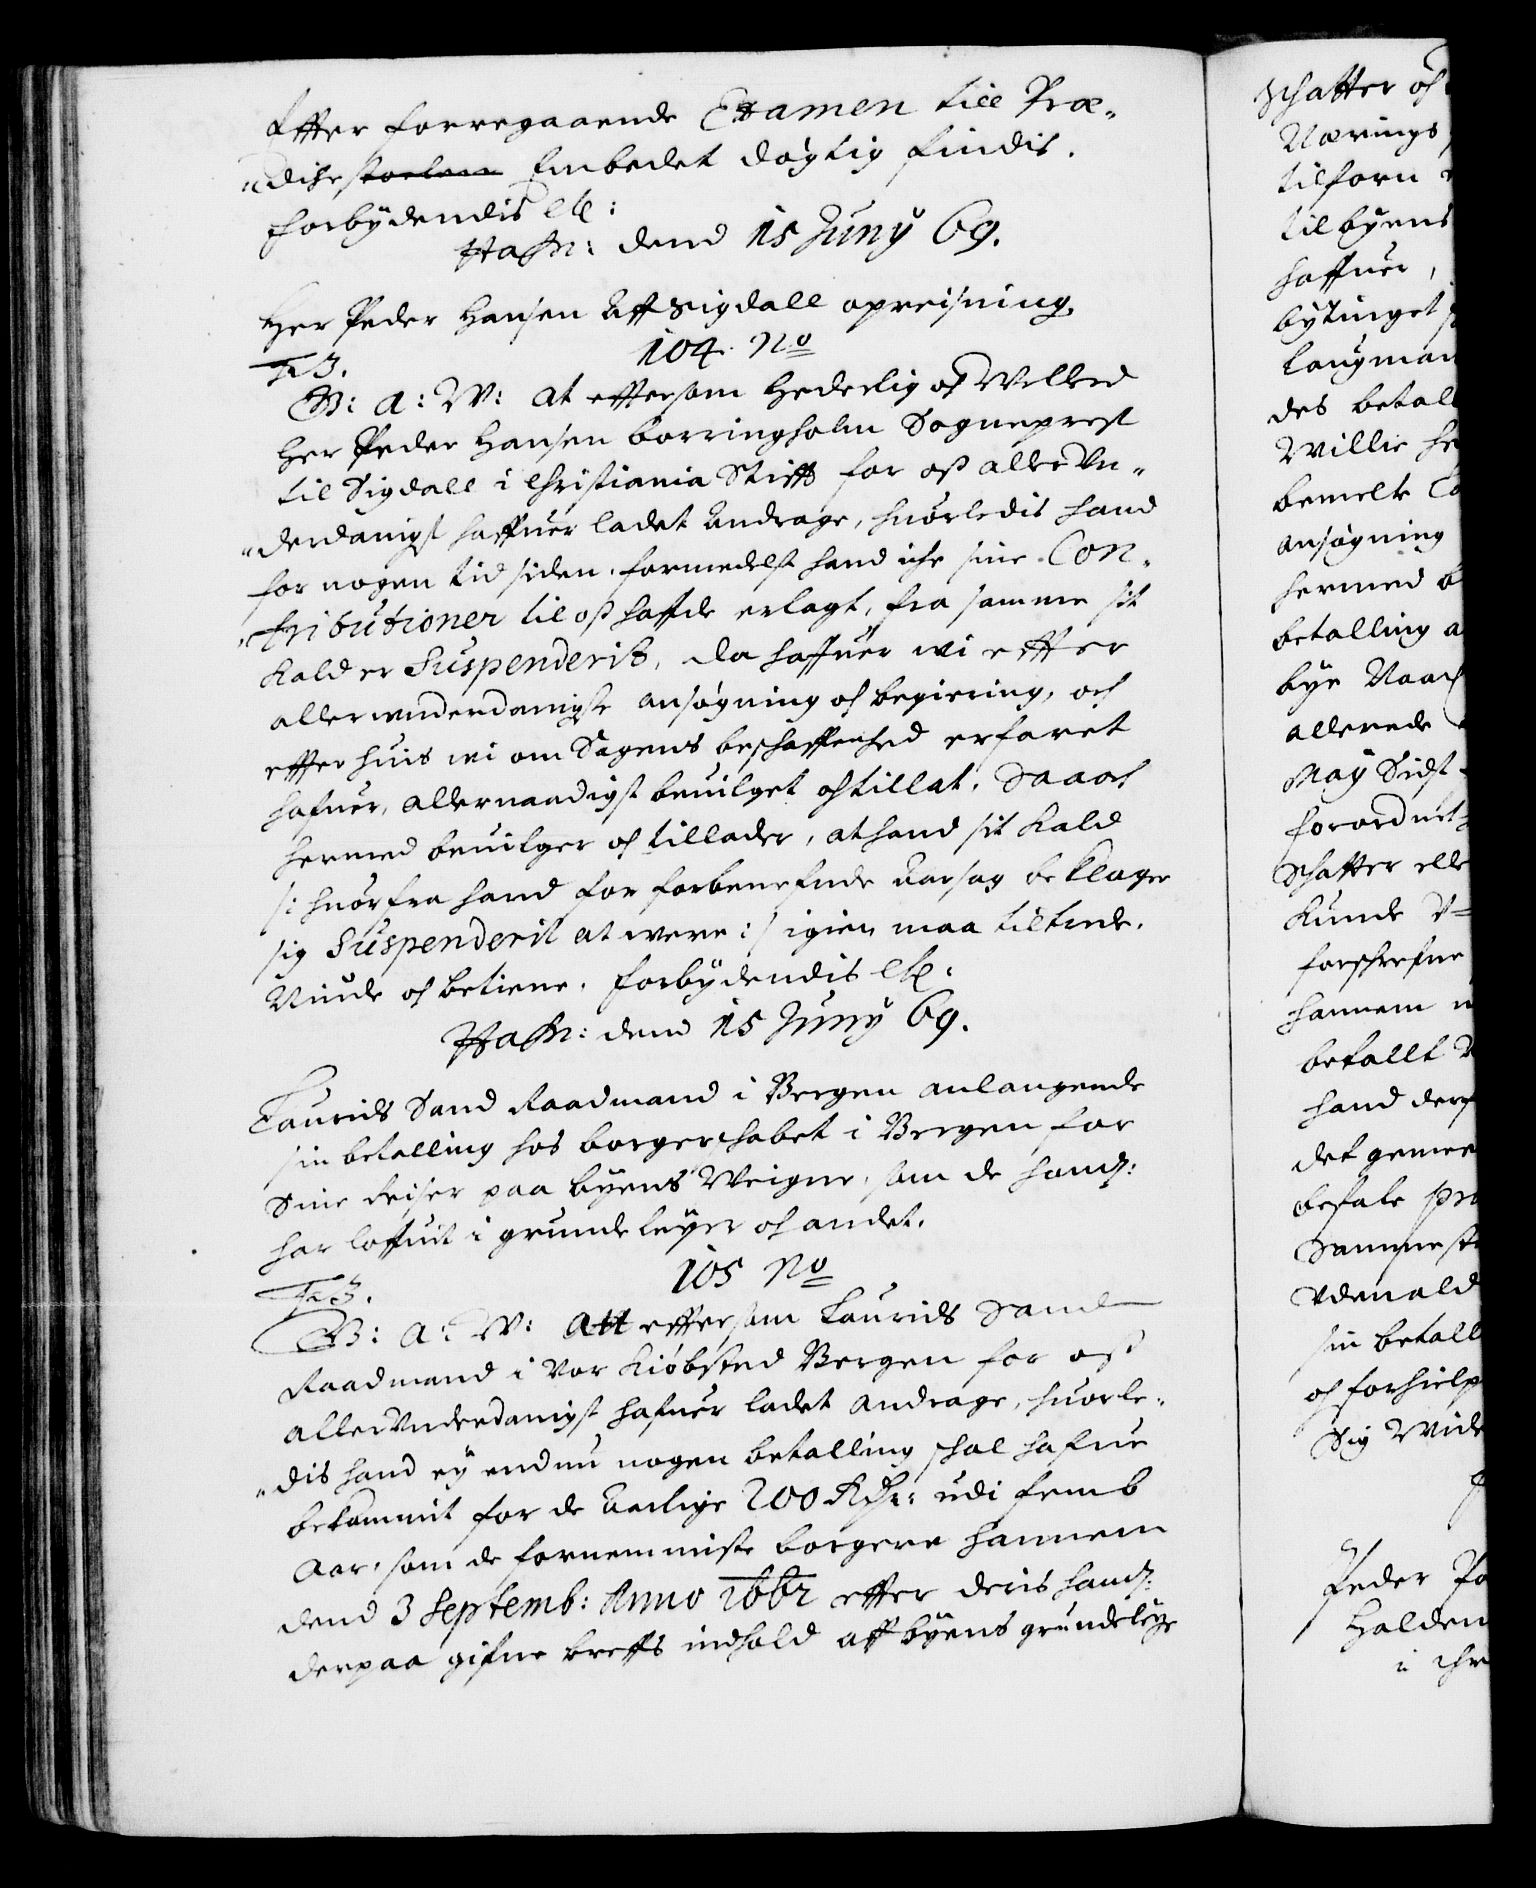 Effter forregaaende Examen till Præ„
„diche stoelen Embedet døgtig findis.
forbÿdendis etc:
Hafn: dend 15 Junÿ 69.
Her Peder Hansen Aff Sigdall opreisning.
F 3.
104. No
G: A: W: At effersom Hederlig oc Wellerd
Her Peder Hansen borringholm Sogneprest
til Sigdall i Christiania Stifft for oß aller Vn„
„derdanigst haffuer ladet Andrage, huorledis hand
for nogen tid siden, formedelst hand iche sine Con„
„tributioner til oß hafde erlagt, fra samme sit
Kald er Suspenderit, da haffuer wi effter
allerunderdanigste ansøgning oc begiering, och
effter huis wi om Sagens beschaffenhed erfaret
hafuer, allernaadigst beuilget oc tillat, Saa och
hermed beuilger oc tillader, at hand sit Kald
/: huorfra hand for forbenefnde Aarsag beklager
sig Suspenderit at were :/ igien maa tiltrede,
Niude oc betiene. forbÿdendis etc:
Hafn: dend 15 Junÿ 69.
Laurids Sand Raadmand i Bergen anlangende
sin betalling hos borgerschabet i Bergen for
Sine Reiser paa bÿens Weigne, som de hannem
har loffuit i grundeleÿer oc andet.
F 3.
105 No
G: A: W: Att effersom Laurids Sand
Raadmand i Vor Kiøbsted Bergen for oß
allerVnderdanigst hafuer ladet Andrage, huorle„
„dis hand eÿ endnu nogen betalling schal hafue
bekommit for de Aarlige 200 Rdr: udi femb
Aar, som de fornemmiste borgere hannem
dend 3 Septemb: Anno 1662 effter deris hannem
derpaa gifne breffs indhold aff bÿens grundeleÿe
Schatter oc
Nærings
tilforn
til bÿens
haffuer,
bÿtinget
Laugman
des betall
Willie he
bemelte Co
Ansøgning
hermed b
betalling a
bÿe Naar
allerede
Maÿ Sidst
forordnet
Schatter elle
Kunde V
forschrefne
hannem
betallt
hand der
det gemee
befale pr
Samme st
Vdenald
sin betall
oc forhielp
Sig Wide
Peder Po
Halden
i Chr